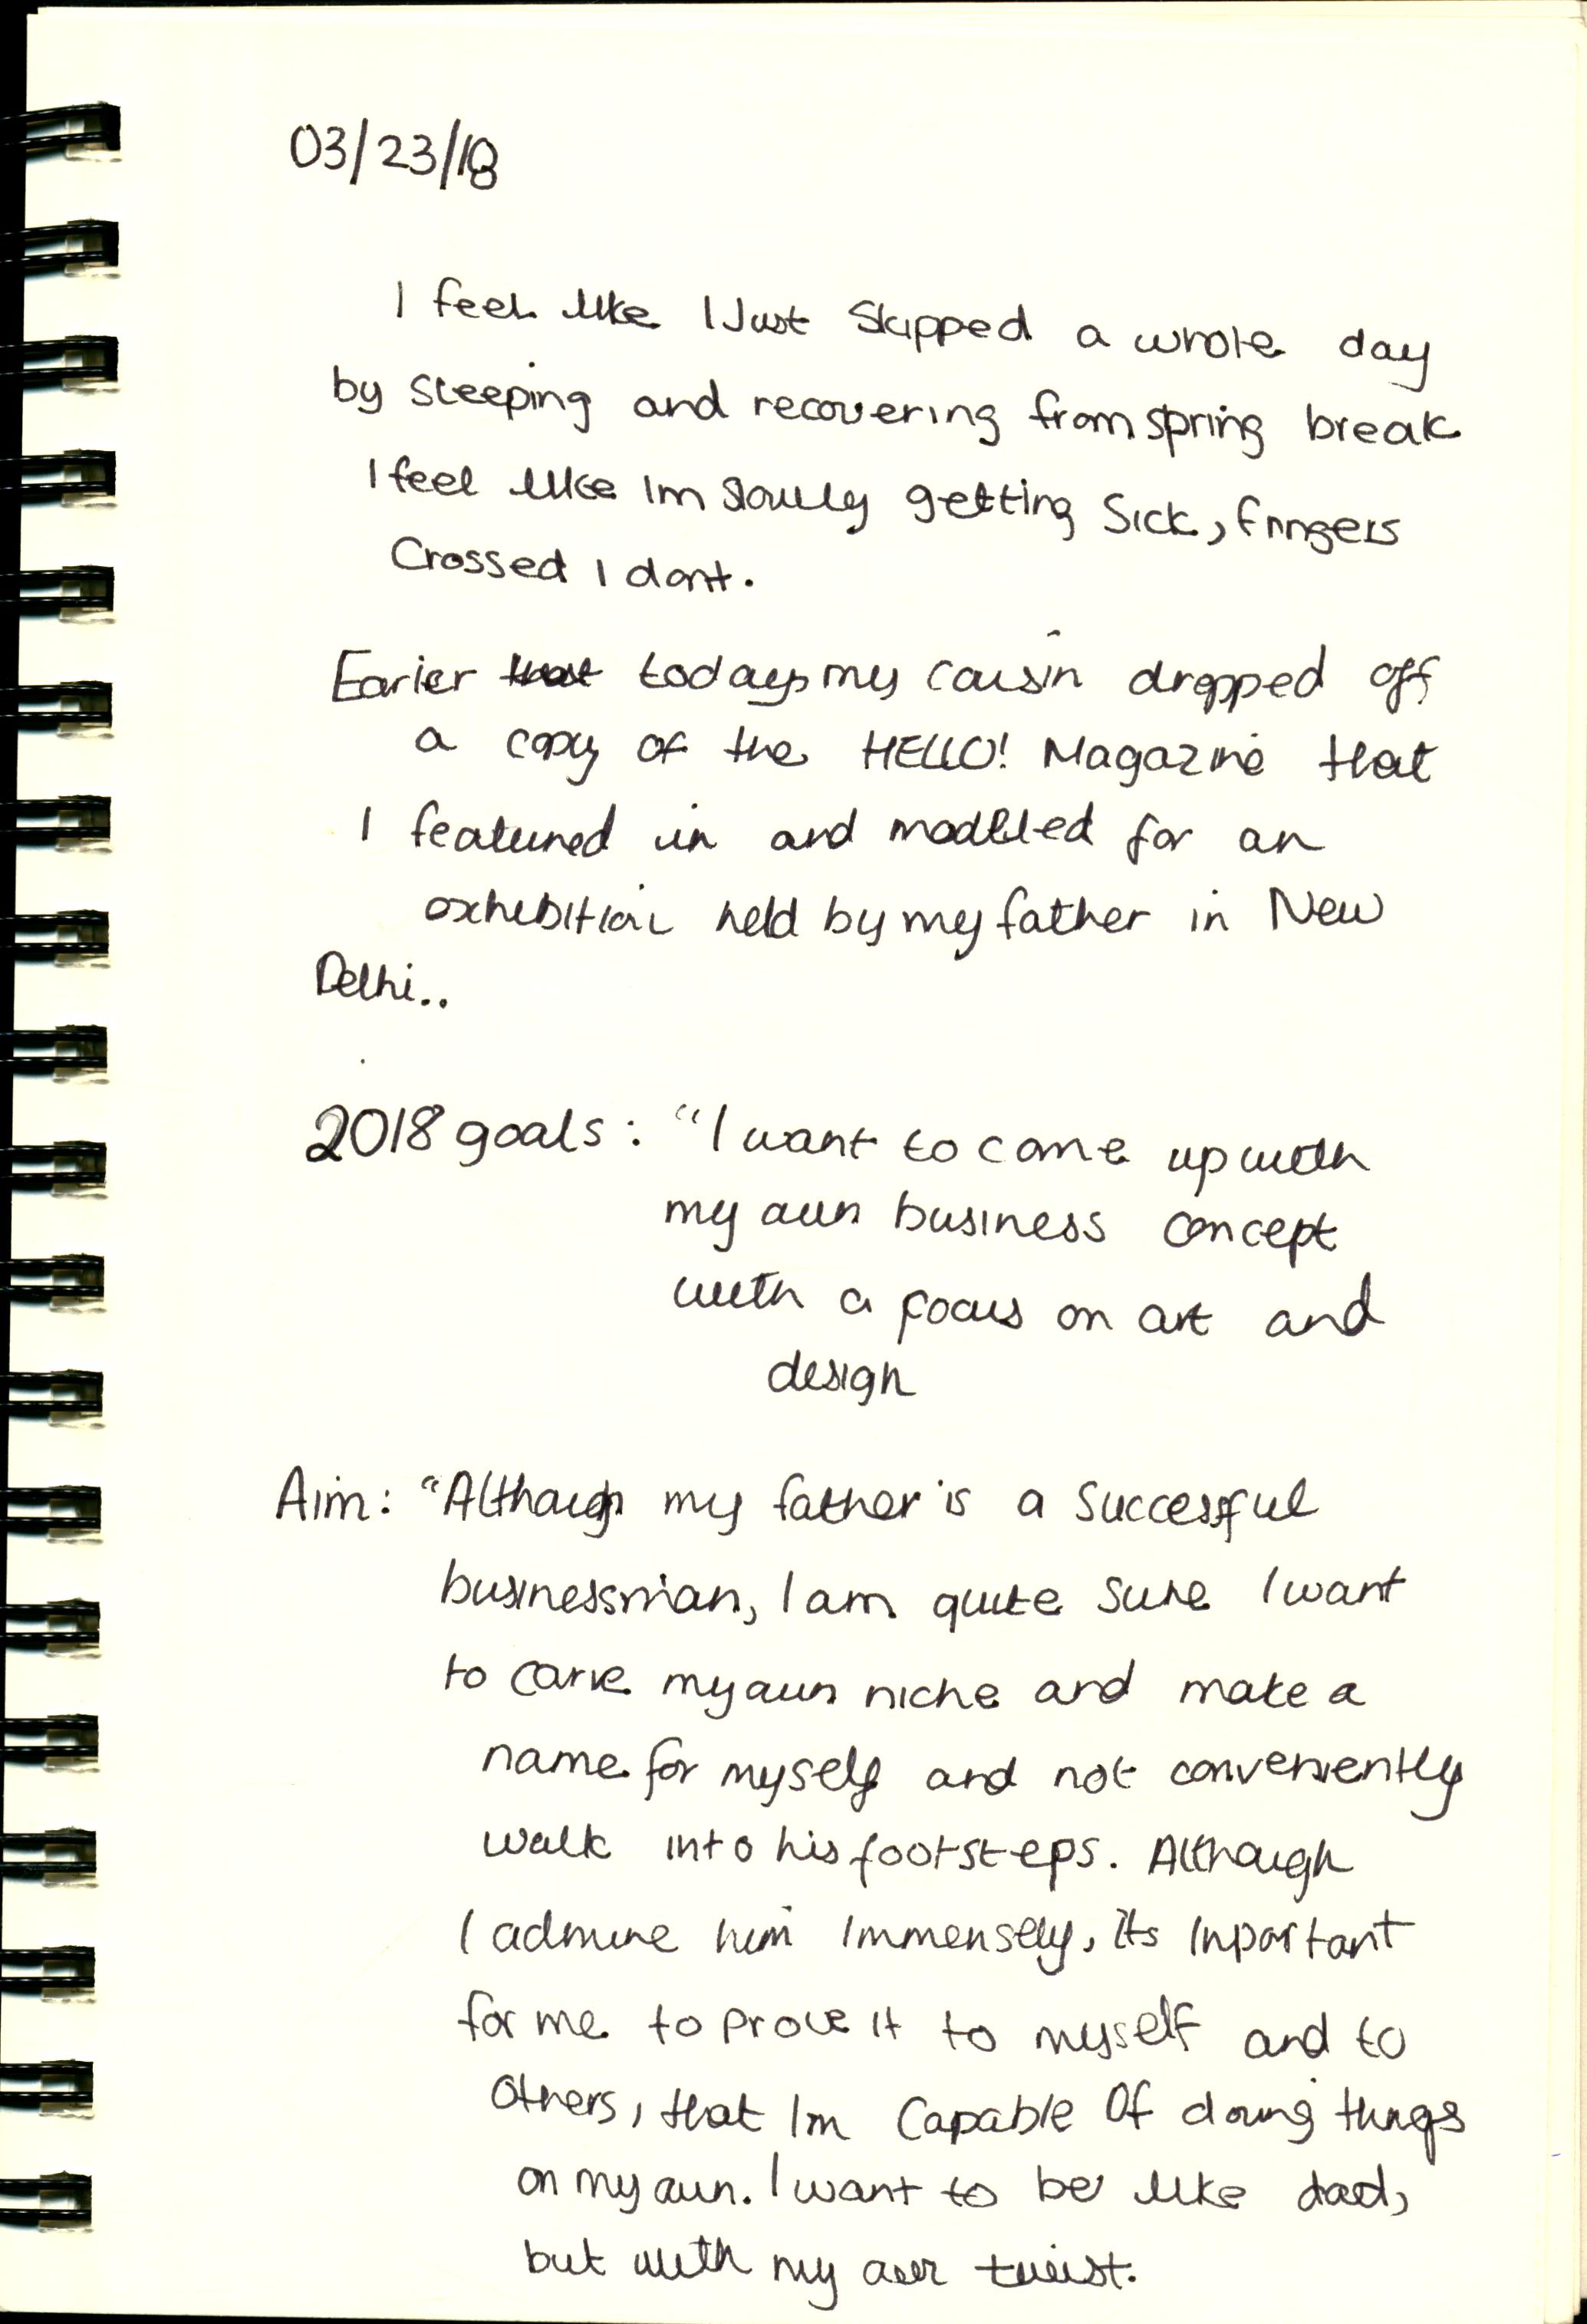 03/23/18
I feel like I Just Skipped a whole day
by Sleeping and recovering from spring break
I feel like Im slowly getting Sick, fingers
Crossed I dont.
Earier that today, my cousin dropped off
a copy of the HELLO! Magazine that
I featured in and modelled for an
exhibition held by my father in New
Delhi..
2018 goals: "I want to come up with
my own business concept
with a focus on art and
design
Aim: "Although my father is a Successful
businessman, I am quite sure I want
to carve my own niche and make a
name for myself and not conveniently
walk into his footsteps. Although
I admire him immensely, its Inportant
for me to prove it to myself and to
others, that Im Capable Of doing things
on my own. I want to be like dad,
but with my own twist.